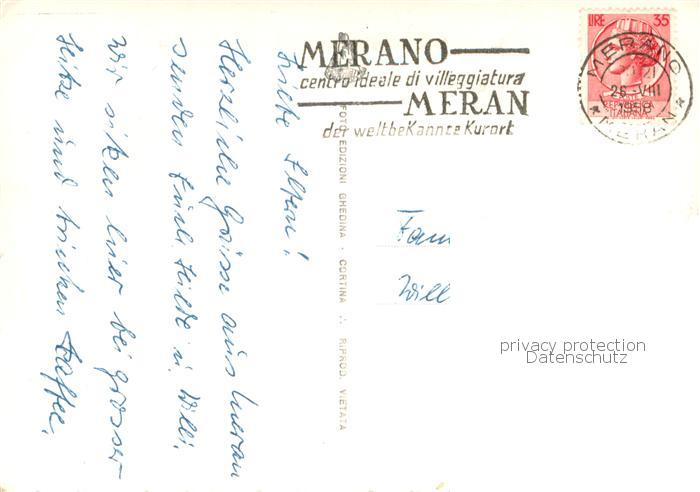 MERANO
centro ideale di villeggiatura
MERAN
der weltbekannte Kurort
LIRE 35
MERANO
26-VIII
1958
MERAN
ITALIANA
Liebe Eltern!
Herzliche Grüsse aus Meran
senden Euch Hilde u. Willi.
Wir sitzen hier bei grosser
Hitze und trinken Kaffee.
FOTO EDIZIONI GHEDINA · CORTINA RIPROD. VIETATA
Fam
Will
privacy protection
Datenschutz